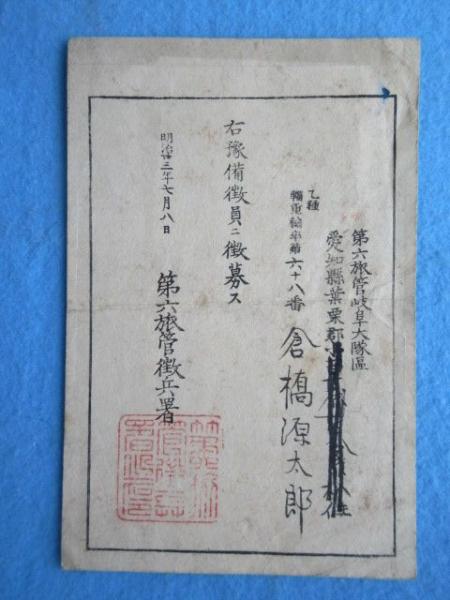 第六旅管岐阜大隊區
愛知縣葉栗郡
乙種
輜重輸卒第六十八番 倉橋源太郎
右豫備徴員ニ徴募ス
明治廿三年七月八日
第六旅管徴兵署